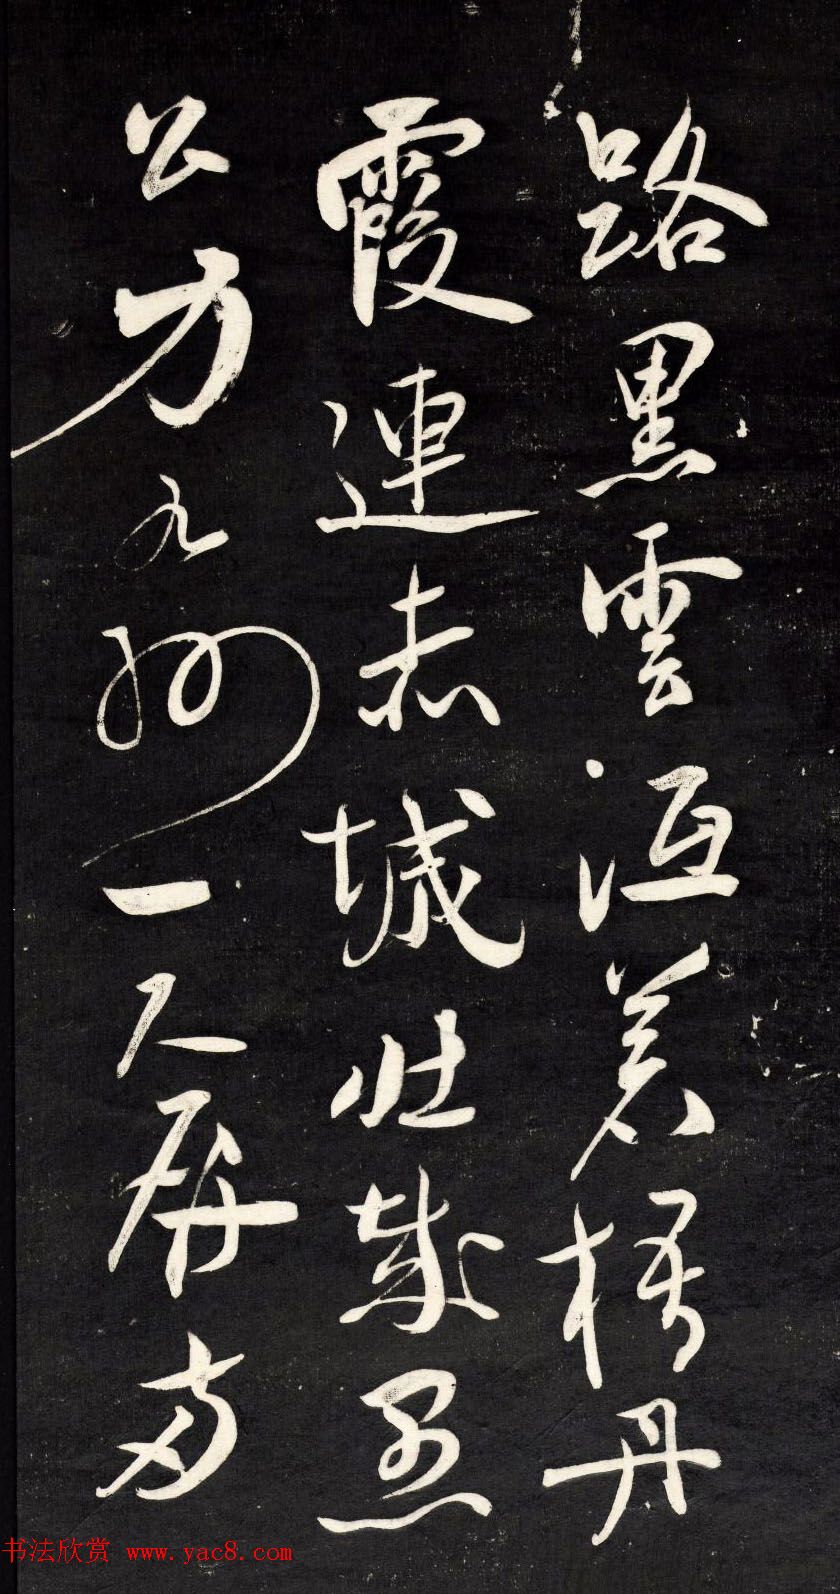 路黑雲沍蒼梧丹
霞連赤城壯哉愚
公力九州一人屏
书法欣赏 www.yac8.com